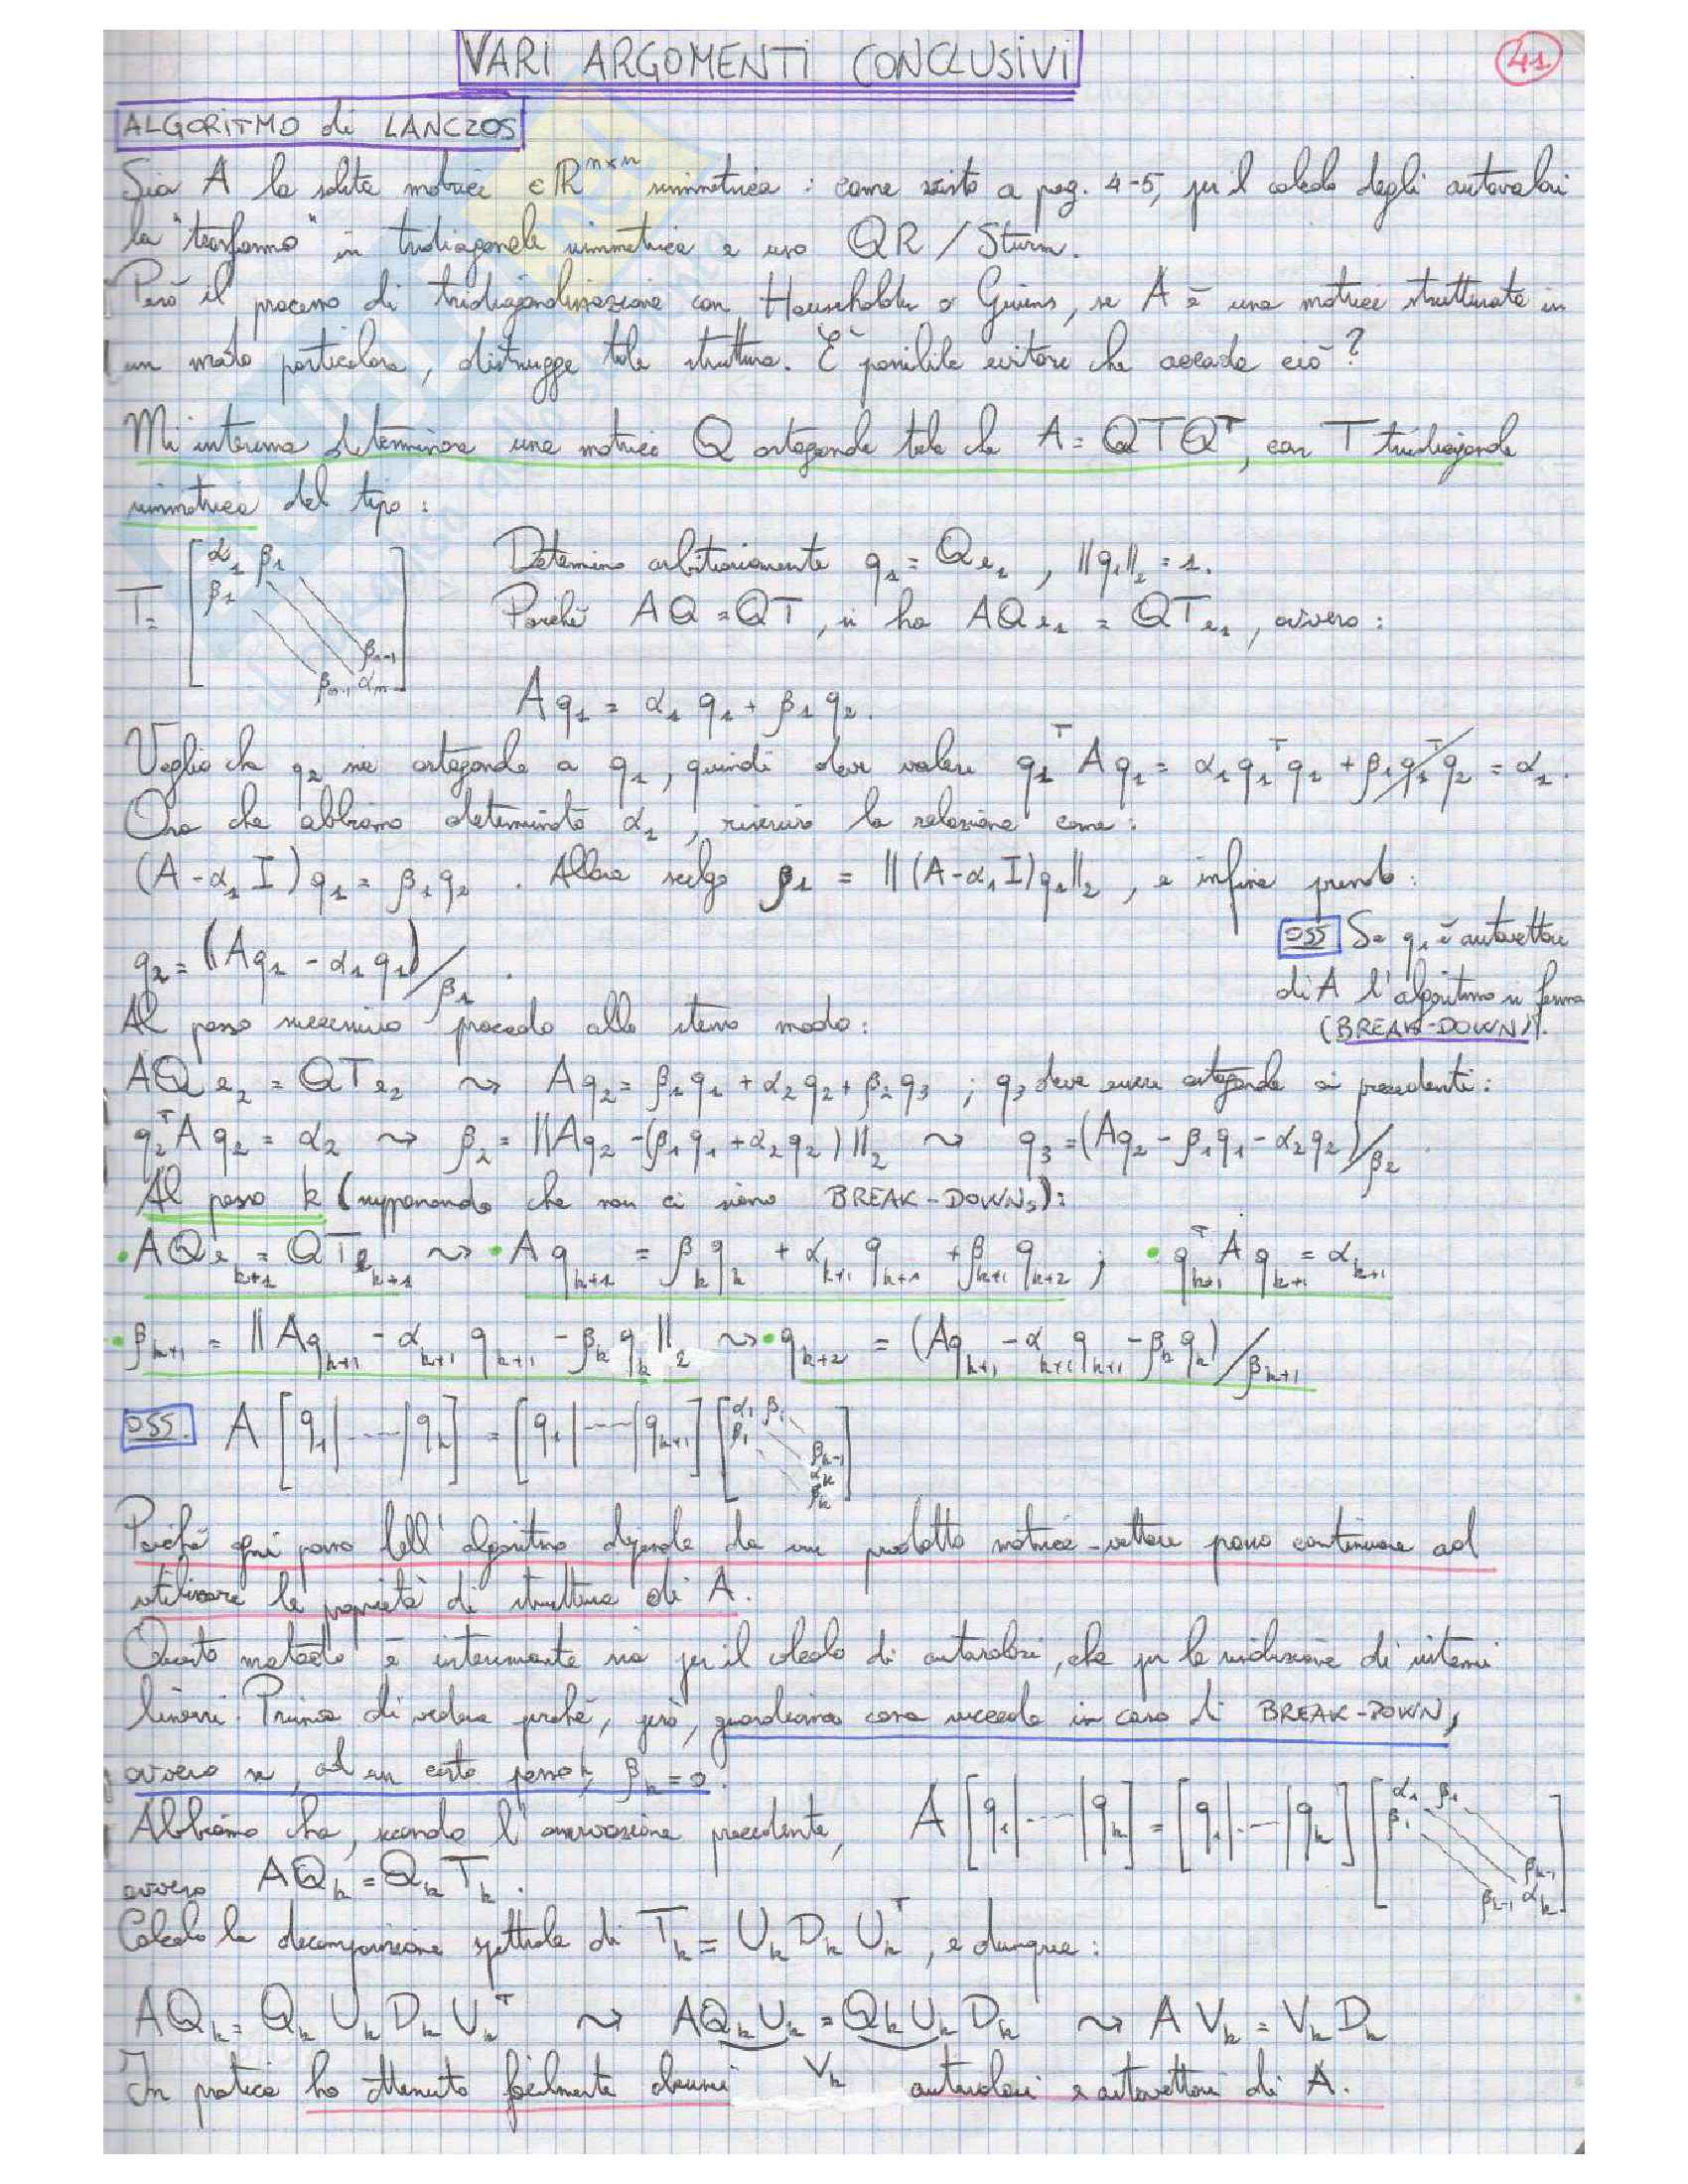 VARI ARGOMENTI CONCLUSIVI
41
ALGORITMO di LANCZOS
Sia A la solita matrice ∈ ℝ^{n×n} simmetrica : come visto a pag. 4-5, per il calcolo degli autovalori
la "trasformo" in tridiagonale simmetrica e uso QR / Sturm.
Però il processo di tridiagonalizzazione con Householder o Givens, se A è una matrice strutturata in
un modo particolare, distrugge tale struttura. È possibile evitare che accada ciò ?
Mi interessa determinare una matrice Q ortogonale tale che A = QTQ^T, con T tridiagonale
simmetrica del tipo :
T = [α_1 β_1 β_1 β_{n-1} β_{n-1} α_n]
Determino arbitrariamente q_1 = Qe_1 , ||q_1||_2 = 1.
Poiché AQ = QT, si ha AQe_1 = QTe_1, ovvero :
Aq_1 = α_1 q_1 + β_1 q_2.
Voglio che q_2 sia ortogonale a q_1, quindi deve valere q_1^T A q_1 = α_1 q_1^T q_1 + β_1 q_1^T q_2 = α_1.
Ora che abbiamo determinato α_1, riscrivo la relazione come :
(A - α_1 I) q_1 = β_1 q_2 . Allora scelgo β_1 = ||(A - α_1 I) q_1||_2 , e infine prendo :
q_2 = (Aq_1 - α_1 q_1)/β_1 .
OSS Se q_1 è autovettore
di A l'algoritmo si ferma
(BREAK-DOWN).
Al passo successivo procedo allo stesso modo :
AQe_2 = QTe_2 ⇝ Aq_2 = β_1 q_1 + α_2 q_2 + β_2 q_3 ; q_3 deve essere ortogonale ai precedenti :
q_2^T A q_2 = α_2 ⇝ β_2 = ||Aq_2 - (β_1 q_1 + α_2 q_2)||_2 ⇝ q_3 = (Aq_2 - β_1 q_1 - α_2 q_2)/β_2
Al passo k (supponendo che non ci siano BREAK-DOWNs) :
• AQe_{k+1} = QTe_{k+1} ⇝ • Aq_{k+1} = β_k q_k + α_{k+1} q_{k+1} + β_{k+1} q_{k+2} ; • q_{k+1}^T A q_{k+1} = α_{k+1}
• β_{k+1} = ||Aq_{k+1} - α_{k+1} q_{k+1} - β_k q_k||_2 ⇝ • q_{k+2} = (Aq_{k+1} - α_{k+1} q_{k+1} - β_k q_k)/β_{k+1}
OSS. A [q_1|----|q_k] = [q_1|----|q_{k+1}] [α_1 β_1 β_1 β_{k-1} α_k β_k]
Poiché ogni passo dell'algoritmo dipende da un prodotto matrice-vettore posso continuare ad
utilizzare le proprietà di struttura di A.
Questo metodo è interessante sia per il calcolo di autovalori, che per la risoluzione di sistemi
lineari. Prima di vedere perché, però, guardiamo cosa succede in caso di BREAK-DOWN,
ovvero se, ad un certo passo k, β_k = 0.
Abbiamo che, secondo l'osservazione precedente, A [q_1|----|q_k] = [q_1|.--|q_k] [α_1 β_1 β_1 β_{k-1} β_{k-1} α_k]
ovvero AQ_k = Q_k T_k .
Calcolo la decomposizione spettrale di T_k = U_k D_k U_k^T, e dunque :
AQ_k = Q_k U_k D_k U_k^T ⇝ AQ_k U_k = Q_k U_k D_k ⇝ A V_k = V_k D_k
V_k
In pratica ho ottenuto facilmente alcuni autovalori e autovettori di A.